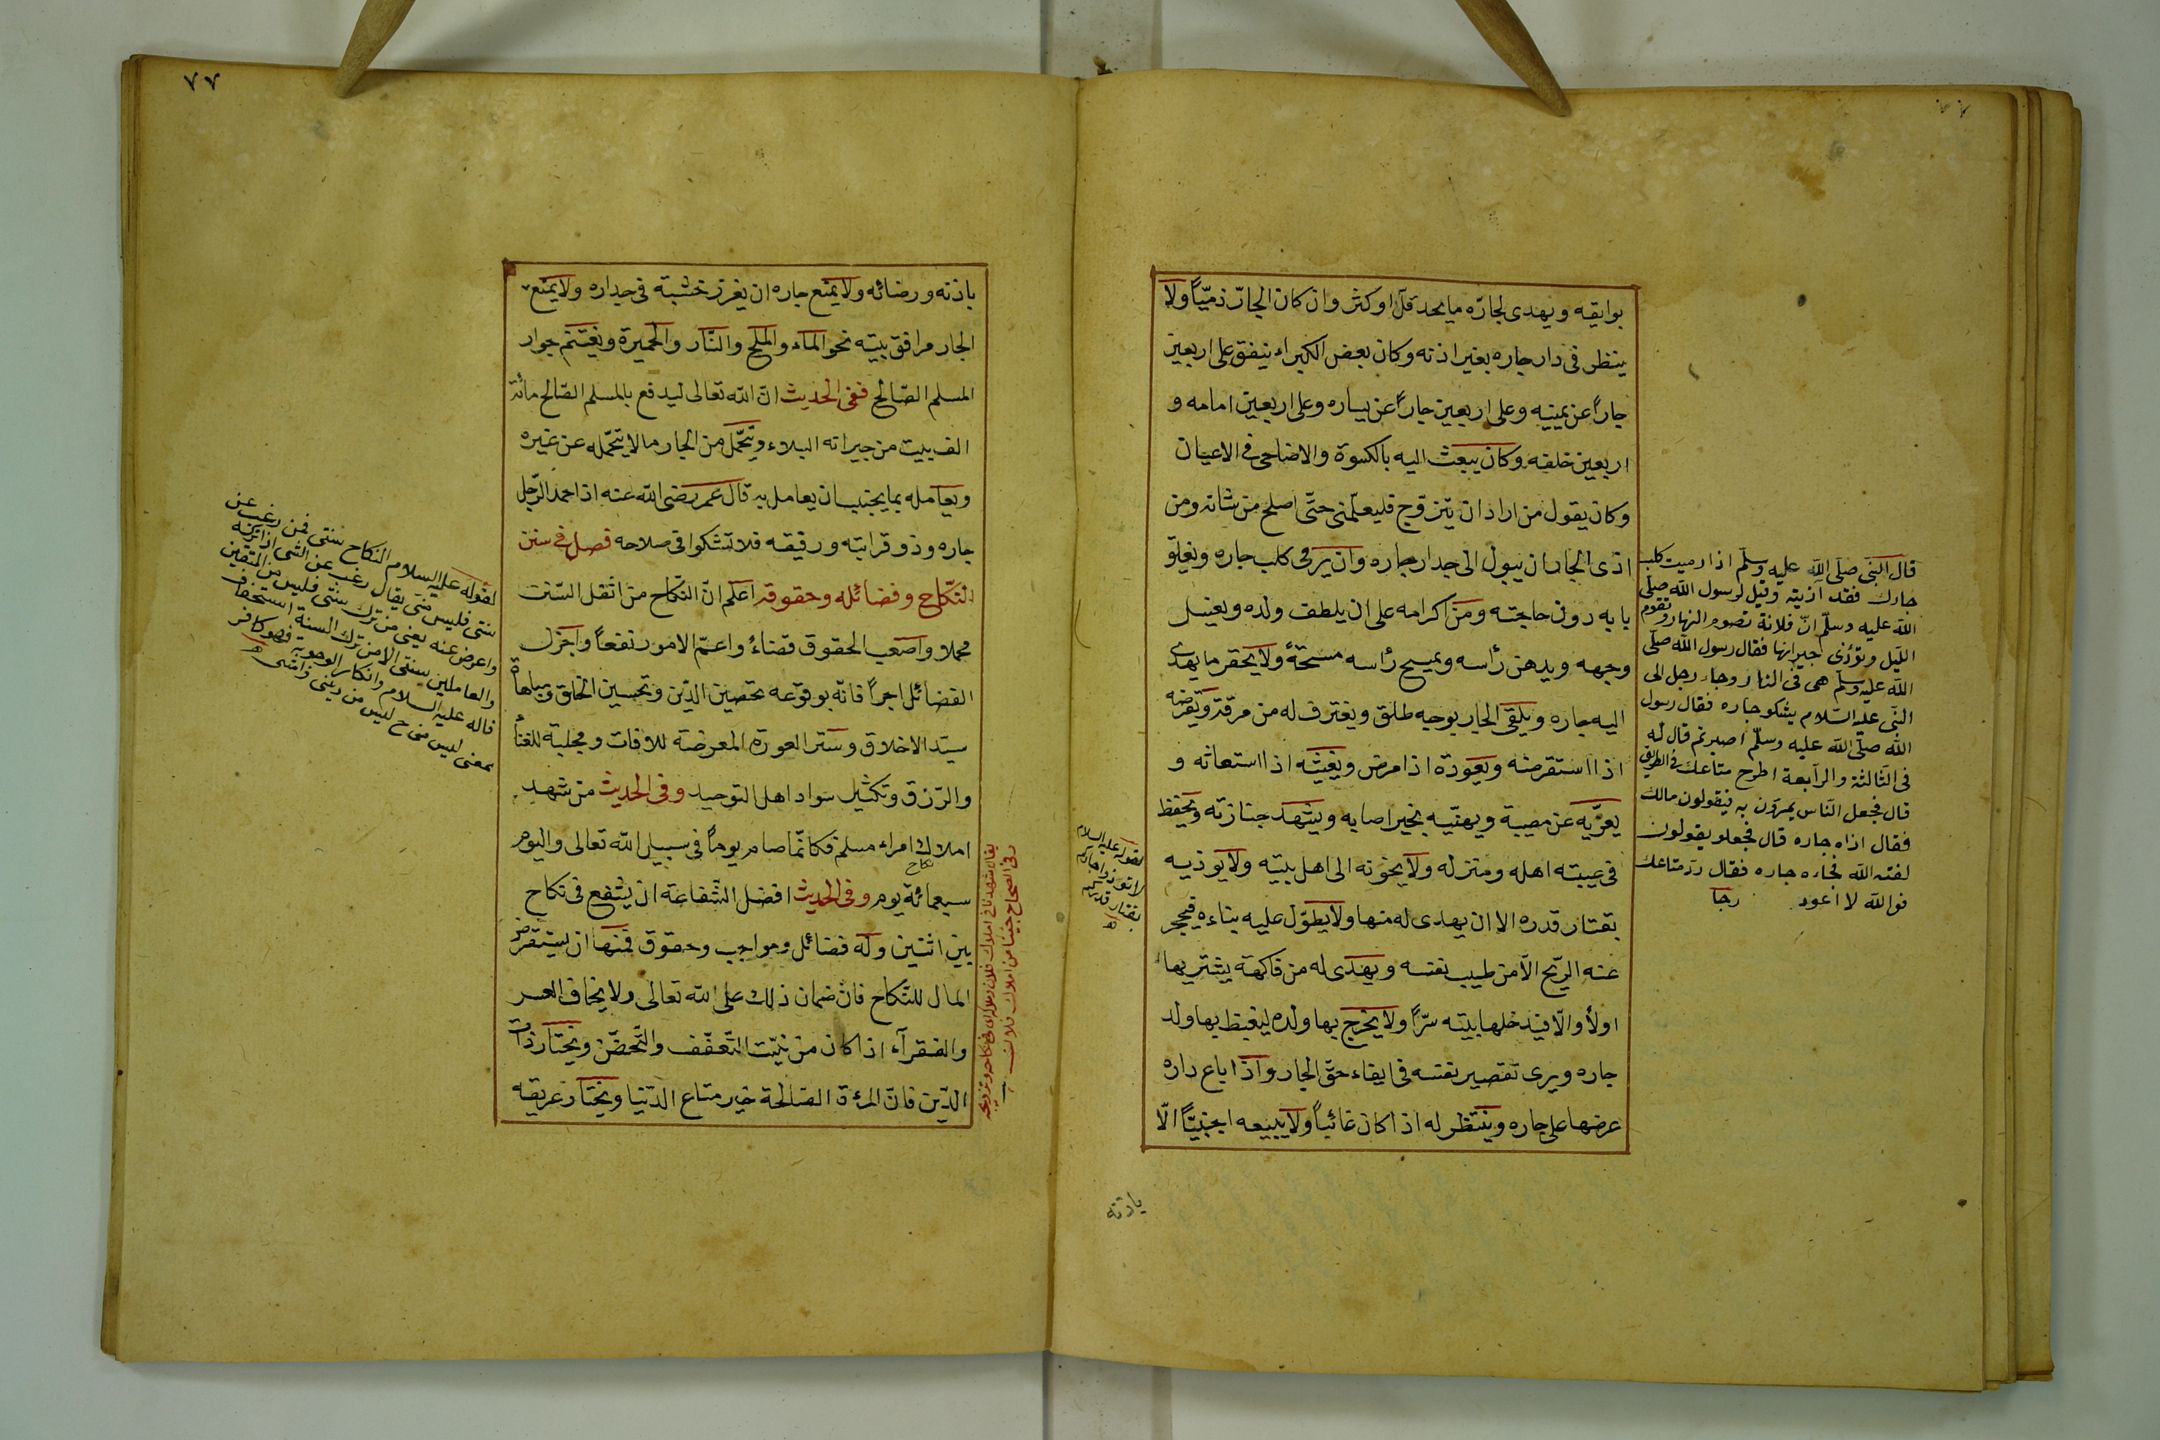 بوايقه ويهدى لجاره مايحد قل اوكثر وان كان الجار ذميا ولا
ينظر فى دار جاره بغير اذنه وكان بعض الكبراء ينفق على اربعين
جارا عن يمينه وعلى اربعين جارا عن يساره وعلى اربعين امامه و
اربعين خلفه وكان يبعث اليه بالكسوة والاضاحى فى الاعياد
وكان يقول من اراد ان يتزوج فليعلمنى حتى اصلح من شانه ومن
اذى الجار ان يبول الى جدار جاره وان يرمى كلب جاره ويغلق
بابه دون حاجته ومن اكرامه على ان يلطف ولده ويغسل
وجهه ويدهن رأسه ويمسح رأسه مسحة ولا يحقر ما يهدى
اليه جاره ويلقى الجار بوجه طلق ويغترف له من مرقة ويقرضه
اذا استقرضه ويعوده اذا مرض ويغيثه اذا استعانه و
يعزيه عن مصيبة ويهنيه بخير اصابه ويشهد جنازته ويحفظ
فى غيبته اهله ومنزله ولا يخونه الى اهل بيته ولا يوذيه
بقتار قدره الا ان يهدى له منها ولا يطول عليه بناءه فيحجر
عنه الريح الا من طيب نفسه ويهدى له من فاكهة يشتريها
اولا والا فيدخلها بيته سرا ولا يخرج بها ولده ليغيظ بها ولد
جاره ويرى تقصير نفسه فى ايفاء حق الجار واذا باع داره
عرضها على جاره وينتظر له اذا كان غائبا ولا يبيعه اجنبيا الا
باذنه
قال النبى صلى الله عليه وسلم اذا رميت كلب
جارك فقد اذيته وقيل لرسول الله صلى
الله عليه وسلم ان فلانة تصوم النهار وتقوم
الليل وتؤذى جيرانها فقال رسول الله صلى
الله عليه وسلم هى فى النار وجاء رجل الى
النبى عليه السلام يشكو جاره فقال رسول
الله صلى الله عليه وسلم اصبر ثم قال له
فى الثالثة والرابعة اطرح متاعك فى الطريق
قال فجعل الناس يمرون به فيقولون مالك
فقال اذاه جاره قال فجعلو يقولون
لعنه الله فجاءه جاره فقال رد متاعك
فوالله لا اعود
لقوله عليه السلام
لا توذوا جاركم
بقتار قدركم
٧٧
باذنه ورضائه ولا يمنع جاره ان يغرز خشبة فى جداره ولا يمنع
الجار مرافق بيته نحو الماء والملح والنار والخميرة ويغتنم جوار
المسلم الصالح ففى الحديث ان الله تعالى ليدفع بالمسلم الصالح مائة
الف بيت من جيرانه البلاء ويتحمل من الجار مالا يتحمله عن غيره
ويعامله بما يحب ان يعامل به قال عمر رضى الله عنه اذا حمد الرجل
جاره وذو قرابته ورفيقه فلا تشكوا فى صلاحه فصل فى سنن
النكاح وفضائله وحقوقه اعلم ان النكاح من اثقل السنن
محملا واصعب الحقوق قضاء واعم الامور نفعا واجزل
الفضائل اجرا فانه بوقوعه تحصين الدين وتحسين الخلق ومباهاة
سيد الاخلاق وستر العورة المعرضة للافات ومجلبة للغنا
والرزق وتكثير سواد اهل التوحيد وفى الحديث من شهد
املاك امراء مسلم فكانما صام يوما فى سبيل الله تعالى واليوم
نكاح
سبعمائة يوم وفى الحديث افضل الشفاعة ان يشفع فى نكاح
بين اثنين وله فضائل ومواجب وحقوق فمنها ان يستقرض
المال للنكاح فان ضمان ذلك على الله تعالى ولا يخاف العسر
والفقرآء اذا كان من نيته التعفف والتحصن ويختار ذات
الدين فان المرءة الصالحة خير متاع الدنيا ويختار عريقة
لقوله عليه السلام النكاح سنتى فمن رغب عن
سنتى فليس منى يقال رغب عن الشى اذا تركه
واعرض عنه يعنى من ترك سنتى فليس من المتقين
والعاملين سنتى الا من ترك السنة استخفافا
قاله عليه السلام وانكار الوجوبه فهو كافر
بمعنى ليس منى ح ليس من دينى وامتى
يقال شهدنا فى املاك فلان وملاكه اى فى نكاحه وتزويجه
وفى الصحاح جئنا من املاك فلان